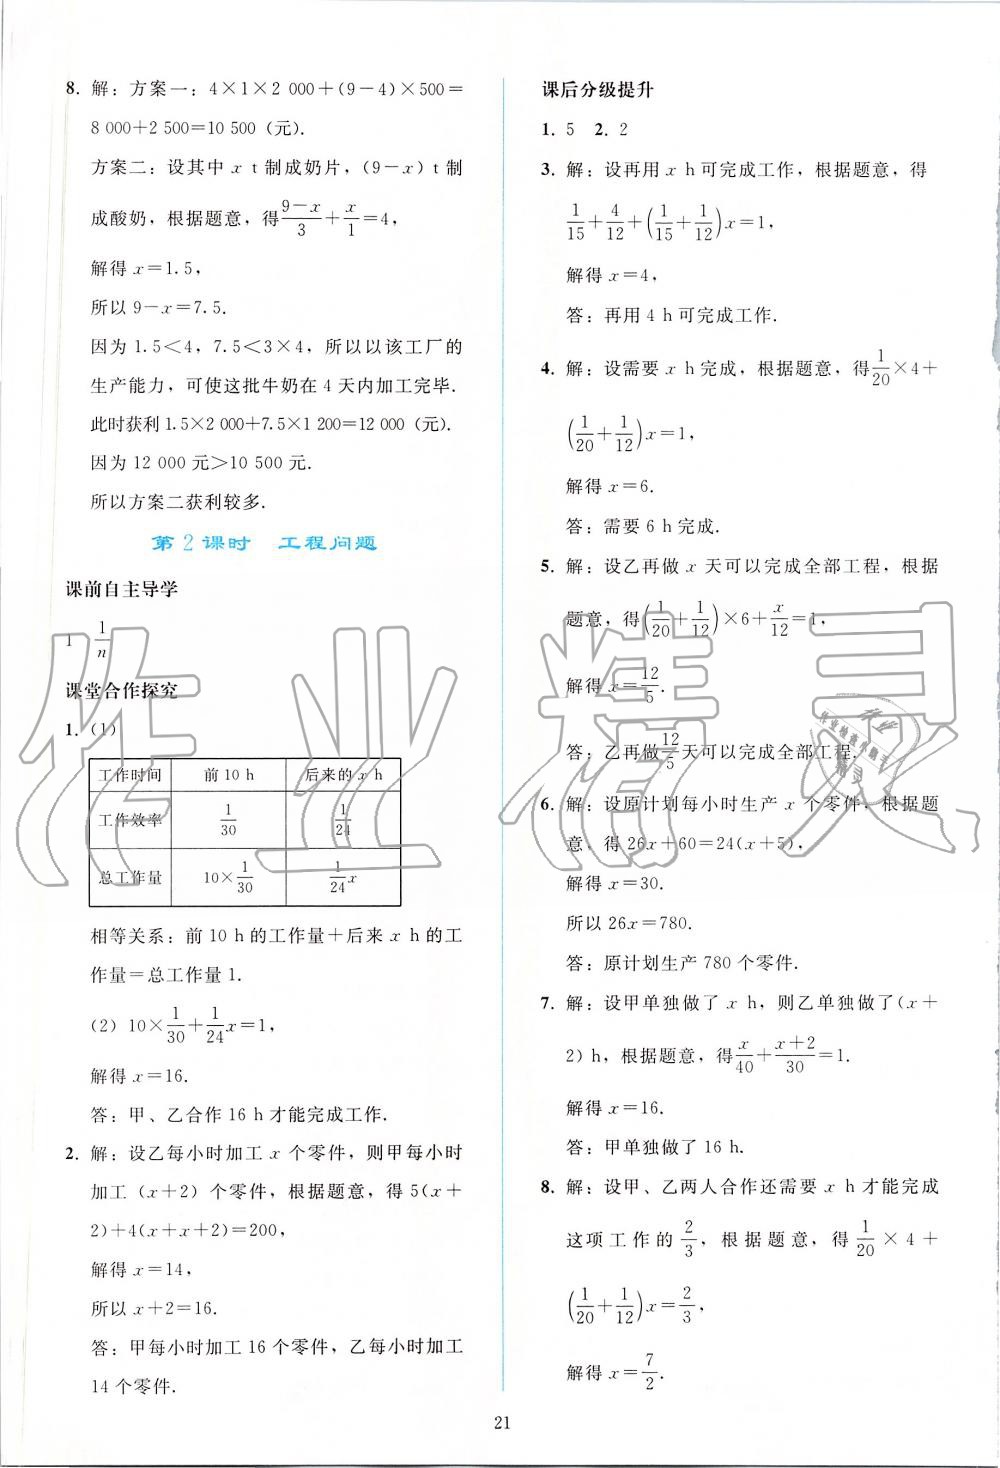 8. 解：方案一：4×1×2 000＋(9－4)×500＝
8 000＋2 500＝10 500 (元).
方案二：设其中 x t 制成奶片，(9－x) t 制
成酸奶，根据题意，得(9－x)/3＋x/1＝4，
解得 x＝1.5，
所以 9－x＝7.5.
因为 1.5＜4，7.5＜3×4，所以以该工厂的
生产能力，可使这批牛奶在 4 天内加工完毕.
此时获利 1.5×2 000＋7.5×1 200＝12 000 (元).
因为 12 000 元＞10 500 元.
所以方案二获利较多.
第 2 课时　工程问题
课前自主导学
1　1/n
课堂合作探究
1. (1)
工作时间　前 10 h　后来的 x h
工作效率　1/30　1/24
总工作量　10×1/30　1/24 x
相等关系：前 10 h 的工作量＋后来 x h 的工
作量＝总工作量 1.
(2) 10×1/30＋1/24 x＝1，
解得 x＝16.
答：甲、乙合作 16 h 才能完成工作.
2. 解：设乙每小时加工 x 个零件，则甲每小时
加工 (x＋2) 个零件，根据题意，得 5(x＋
2)＋4(x＋x＋2)＝200，
解得 x＝14，
所以 x＋2＝16.
答：甲每小时加工 16 个零件，乙每小时加工
14 个零件.
课后分级提升
1. 5　2. 2
3. 解：设再用 x h 可完成工作，根据题意，得
1/15＋4/12＋(1/15＋1/12)x＝1，
解得 x＝4，
答：再用 4 h 可完成工作.
4. 解：设需要 x h 完成，根据题意，得1/20×4＋
(1/20＋1/12)x＝1，
解得 x＝6.
答：需要 6 h 完成.
5. 解：设乙再做 x 天可以完成全部工程，根据
题意，得(1/20＋1/12)×6＋x/12＝1，
解得 x＝12/5.
答：乙再做12/5天可以完成全部工程.
6. 解：设原计划每小时生产 x 个零件，根据题
意，得 26x＋60＝24(x＋5)，
解得 x＝30.
所以 26x＝780.
答：原计划生产 780 个零件.
7. 解：设甲单独做了 x h，则乙单独做了(x＋
2) h，根据题意，得x/40＋(x＋2)/30＝1.
解得 x＝16.
答：甲单独做了 16 h.
8. 解：设甲、乙两人合作还需要 x h 才能完成
这项工作的2/3，根据题意，得1/20×4＋
(1/20＋1/12)x＝2/3，
解得 x＝7/2.
21
作业精灵